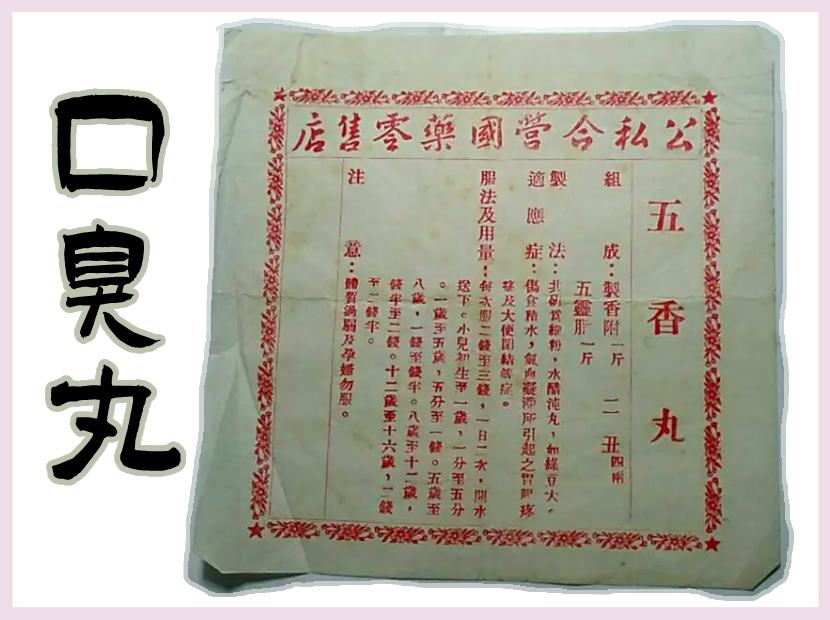 口臭丸
公私合營國藥零售店
五香丸
組成：製香附一斤 二丑四兩
五靈 一斤
製法：共研為細粉，水醋沌丸，如綠豆大。
適應症：傷食積水，氣血凝滯所引起之胃脘疼
痛及大便閉結等症。
服法及用量：每次服二錢至三錢，一日二次，開水
送下。小兒初生至一歲，一分至五分
。一歲至五歲，五分至一錢。五歲至
八歲，一錢至錢半。八歲至十二歲，
錢半至二錢。十二歲至十六歲，二錢
至二錢半。
注意：體質過弱及孕婦勿服。